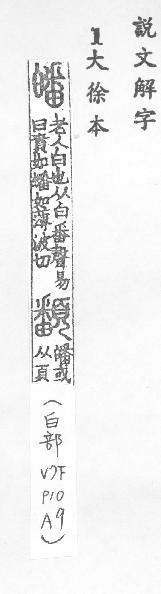 說文解字
1大徐本
皤 老人白也从白番聲易
曰賁如皤如薄波切 𩔇 皤或
从頁
(白部
V7F
P10
A9)